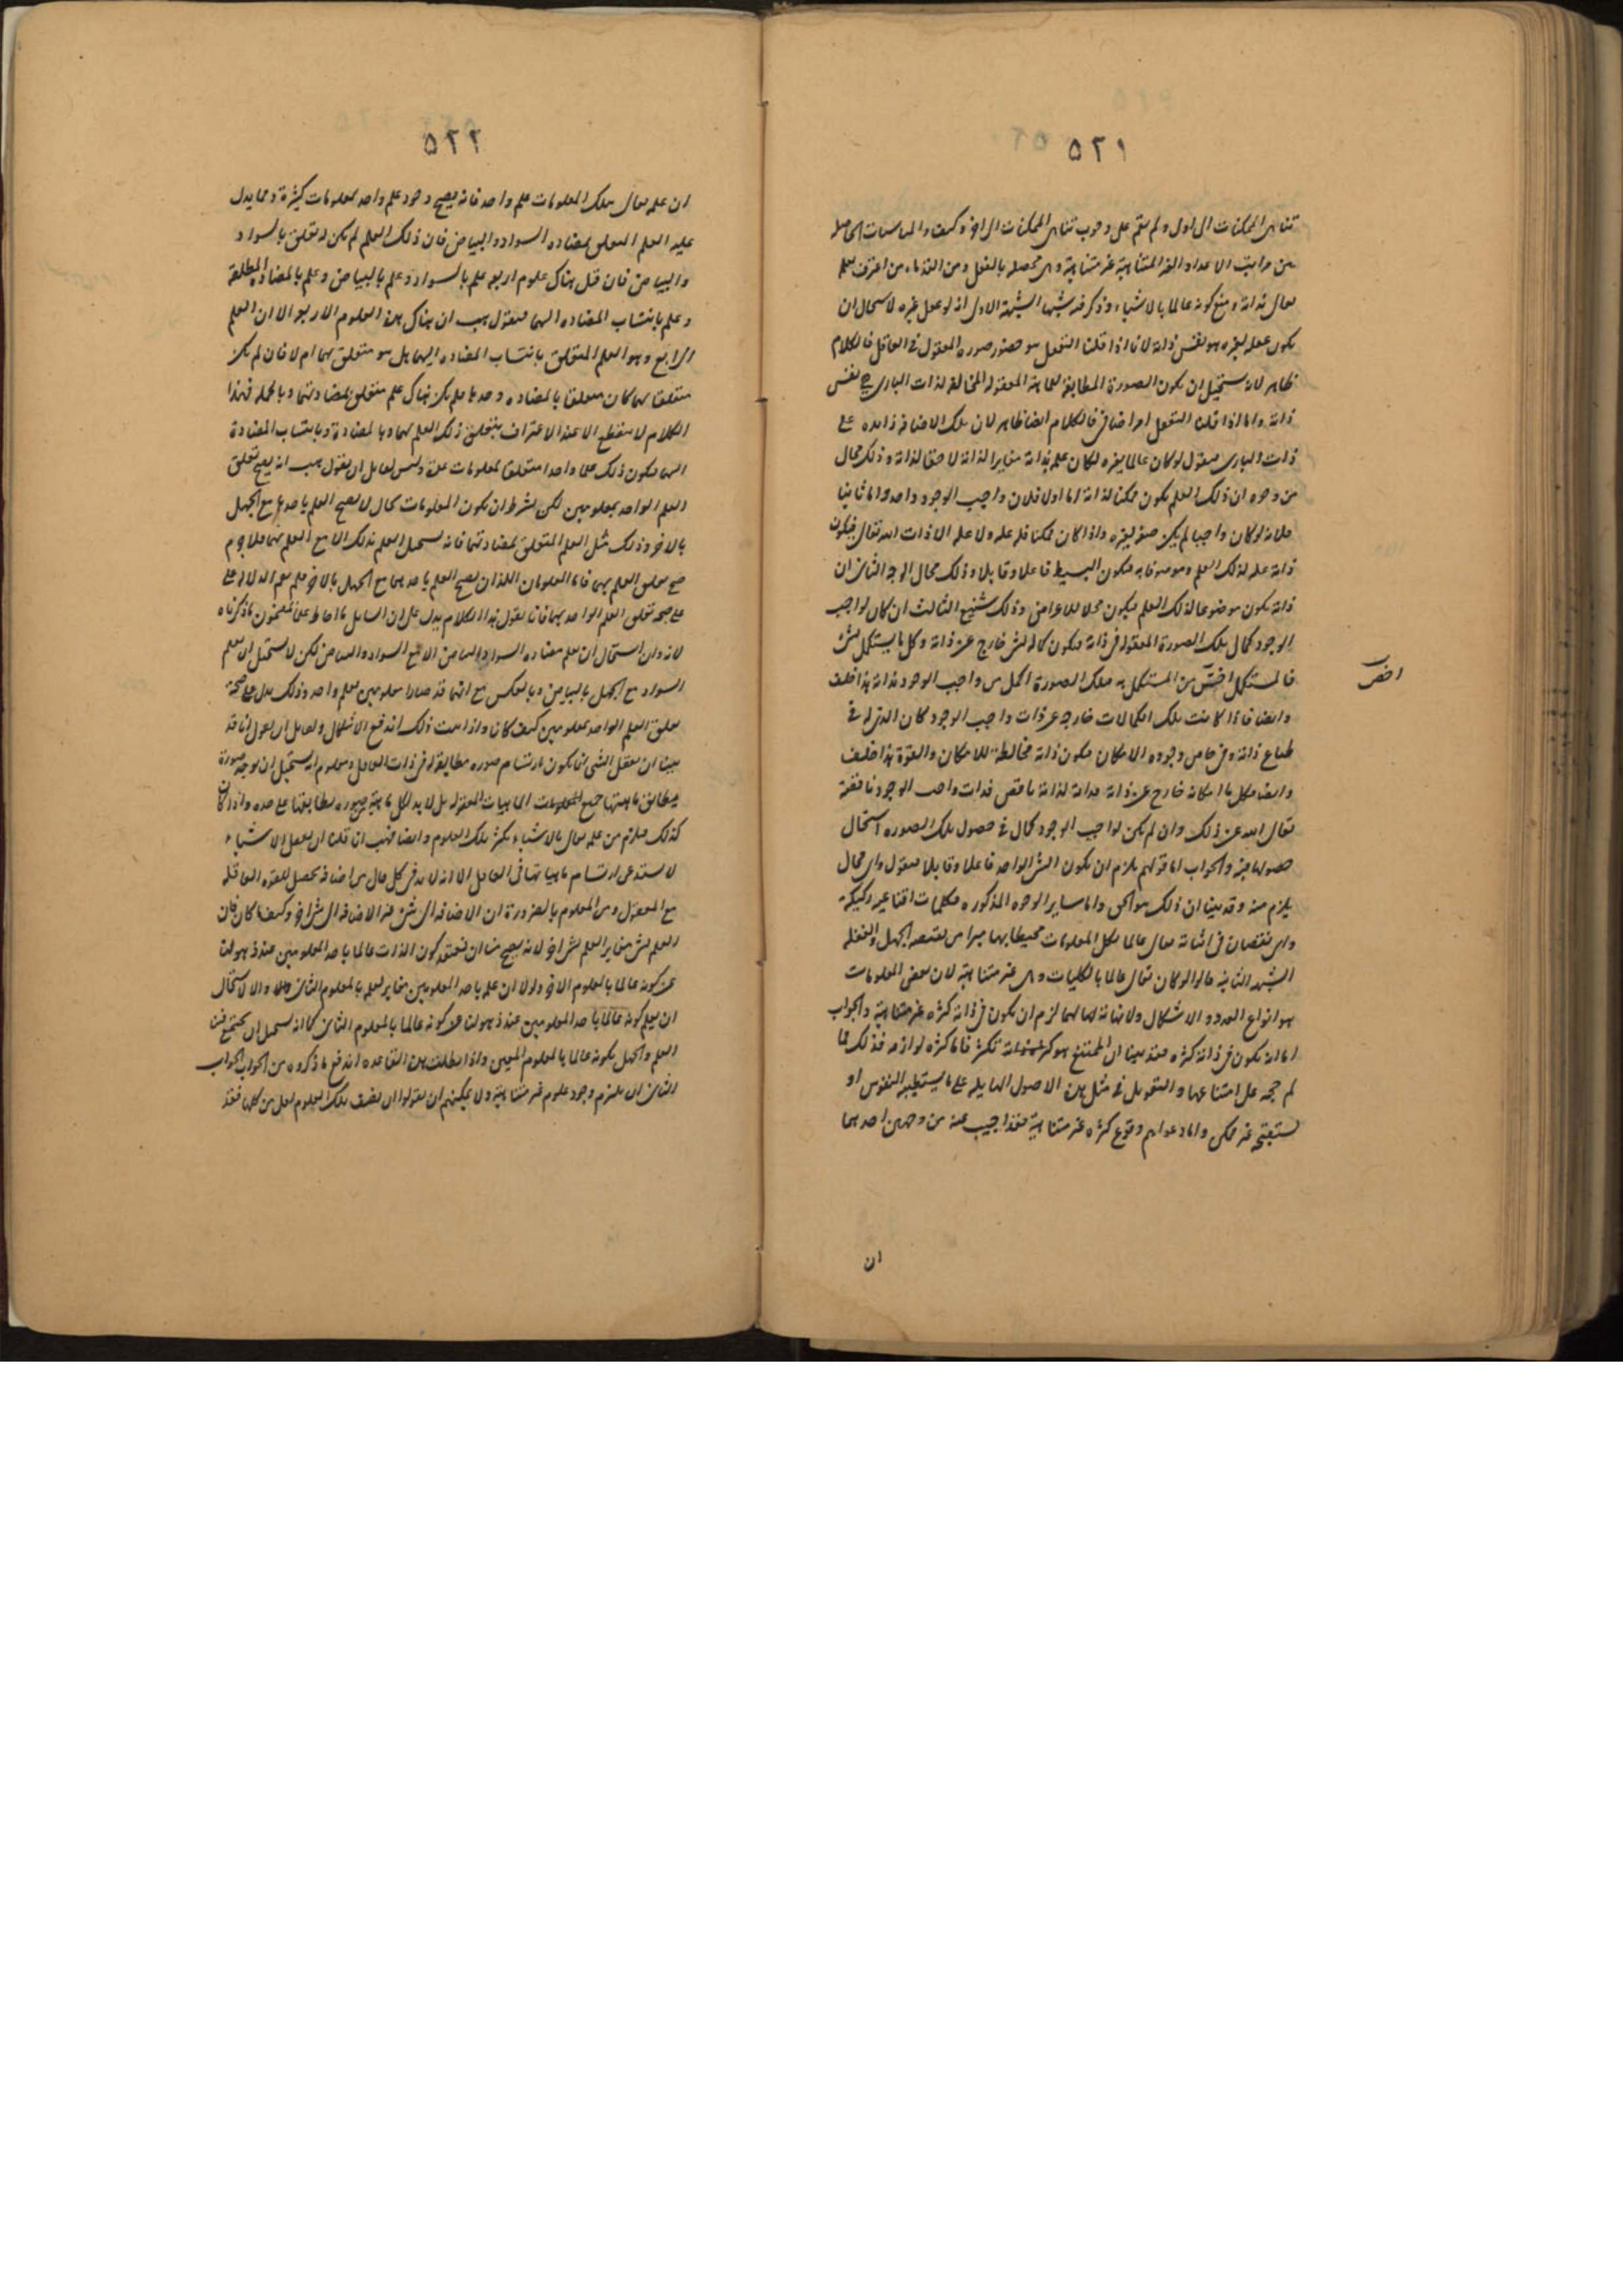 ٥٢١
تناهى الممكنات الى الاول ولم يقم على وجوب تناهى الممكنات الى الاخر وكيف والمناسبات الحاصلة
من مراتب الاعداد الغير المتناهية غير متناهية وهى محصلة بالفعل ومن القدماء من اعترف بعلم
تعالى بذاته ومنع كونه عالما بالاشياء وذكر فيه شبها الشبهة الاولى انه لو عقل غيره لاستحال ان
يكون عقله لغيره هو نفس ذاته لانا اذا قلنا التعقل هو حضور صورة المعقول فى العاقل فالكلام
ظاهر لانه يستحيل ان يكون الصورة المطابقة للماهية المعقولة المخالفة لذات البارى هى نفس
ذاته واما اذا قلنا التعقل امر اضافى فالكلام ايضا ظاهر لان تلك الاضافة زايدة على
ذات البارى فنقول لو كان عالما بغيره لكان علمه بذاته مغايرا لذاته لاحقا لذاته وذلك محال
من وجوه ان ذلك العلم يكون ممكنا لذاته اما اولا فلان واجب الوجود واحد واما ثانيا
فلانه لو كان واجبا لم يكن صفة لغيره واذا كان ممكنا فله علة ولا علة الا ذات الله تعالى فيكون
ذاته علة لذلك العلم وموصوفا به فيكون البسيط فاعلا وقابلا وذلك محال الوجه الثانى ان
ذاته يكون موضوعا لذلك العلم فيكون محلا للاعراض وذلك شنيع الثالث ان كان لواجب
الوجود كمال بتلك الصورة المعقولة فى ذاته فيكون كماله بشئ خارج عن ذاته وكل ما يستكمل بشئ
فالمستكمل اخس من المستكمل به فتلك الصورة اكمل من واجب الوجود بذاته هذا خلف
وايضا فاذا كانت تلك الكمالات خارجة عن ذات واجب الوجود كان الذى له فى
طباع ذاته وفى خاص وجوده الامكان فيكون ذاته مخالطة للامكان والقوة هذا خلف
وايضا فكل ما امكانه خارج عن ذاته فذاته لذاته ناقص فذات واجب الوجود ناقصة
تعالى الله عن ذلك وان لم يكن لواجب الوجود كمال فى حصول تلك الصورة استحال
حصولها فيه والجواب اما قولهم يلزم ان يكون الشئ الواحد فاعلا وقابلا فنقول واى محال
يلزم منه وقد بينا ان ذلك هو الحق واما ساير الوجوه المذكورة فكلمات اقناعية ركيكة
واى نقصان فى اثباته تعالى عالما بكل المعلومات محيطا بها مبرا من نقيصة الجهل والغفلة
الشبهة الثانية قالوا لو كان تعالى عالما بالكليات وهى غير متناهية لان بعض المعلومات
هو انواع العدد والاشكال ولا نهاية لهما لزم ان يكون فى ذاته كثرة غير متناهية والجواب
اما انه يكون فى ذاته كثرة فقد بينا ان الممتنع هو كثرة ذاته فاما كثرة لوازمه فذلك مما
لم حجة على امتناعها والتعويل فى مثل هذه الاصول الهايلة على ما يستطيبه النفوس او
يستقبحه غير ممكن واما دعواهم وقوع كثرة غير متناهية فقد اجيب عنه من وجهين احدهما
ان
اخس
٥٢٢
ان علمه تعالى بتلك المعلومات علم واحد فانه يصح وجود علم واحد بمعلومات كثيرة ومما يدل
عليه العلم المتعلق بمضادة السواد والبياض فان ذلك العلم لم يكن له تعلق بالسواد
والبياض فان قيل هناك علوم اربعة علم بالسواد وعلم بالبياض وعلم بالمضادة المطلقة
وعلم بانتساب المضادة اليهما فنقول هب ان هناك هذه العلوم الاربعة الا ان العلم
الرابع وهو العلم المتعلق بانتساب المضادة اليهما هل هو متعلق بهما ام لا فان لم يكن
متعلقا بهما كان متعلقا بالمضادة وحدها فلم يكن هناك علم متعلق بمضادتهما وبالجملة فهذا
الكلام لا ينقطع الا عند الاعتراف بتعلق ذلك العلم بهما وبالمضادة وبانتساب المضادة
اليهما فيكون ذلك علما واحدا متعلقا بمعلومات عدة وليس لقايل ان يقول هب انه يصح تعلق
العلم الواحد بمعلومين لكن بشرط ان يكون المعلومات بحال لا يصح العلم باحدها مع الجهل
بالاخر وذلك مثل العلم المتعلق بمضادتهما فانه يستحيل العلم بذلك الا مع العلم بهما فلا جرم
صح تعلق العلم بهما فاما المعلومان اللذان يصح العلم باحدهما مع الجهل بالاخر فلم يقم الدلالة على
على صحة تعلق العلم الواحد بهما فانا نقول هذا الكلام يدل على ان السايل ما احاط علما بمضمون ما ذكرناه
لانه وان استحال ان نعلم مضادة السواد والبياض الا مع السواد والبياض لكن لا يستحيل ان نعلم
السواد مع الجهل بالبياض وبالعكس مع انهما قد صارا معلومين بعلم واحد وذلك يدل على صحة
تعلق العلم الواحد بمعلومين كيف كانا واذا ثبت ذلك اندفع الاشكال ولقايل ان يقول انا قد
بينا ان تعقل الشئ انما يكون بارتسام صورة مطابقة له فى ذات العاقل ومعلوم انه يستحيل ان يوجد صورة
يطابق ماهيتها جميع المعلومات الماهيات المعقولة بل لا بد لكل ماهية صورة مطابقتها على حده واذا كان
كذلك فيلزم من علمه تعالى بالاشياء تكثر تلك العلوم وايضا فهب انا قلنا ان تعقل الاشياء
لا يستدعى ارتسام ماهياتها فى العاقل الا انه لا بد فى كل حال من اضافة تحصل للقوة العاقلة
مع المعقول ومن المعلوم بالضرورة ان الاضافة الى شئ غير الاضافة الى شئ اخر وكيف ما كان فان
العلم بشئ مغاير العلم بشئ اخر لانه يصح منا ان نعتقد كون الذات عالما باحد المعلومين عند ذهولنا
عن كونه عالما بالمعلوم الاخر ولولا ان علمه باحد المعلومين مغاير لعلمه بالمعلوم الثانى والا لاستحال
ان نعلم كونه عالما باحد المعلومين عند ذهولنا عن كونه عالما بالمعلوم الثانى كما انه يستحيل ان يجتمع فينا
العلم والجهل بكونه عالما بالمعلوم المعين واذا بطلت هذه القاعدة اندفع ما ذكروه من الجواب الجواب
الثانى ان يلتزم وجود علوم غير متناهية ولا يمكنهم ان يقولوا ان نصف تلك العلوم اقل من كلها فقد